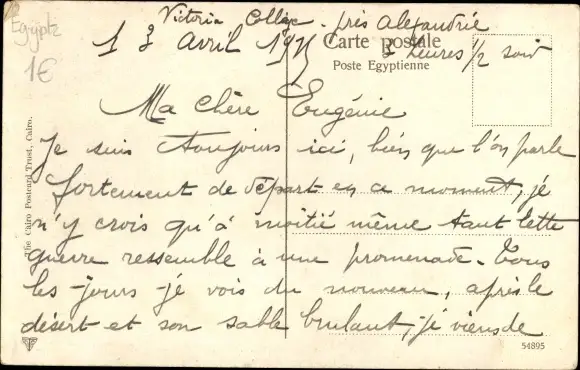 Egypte
1€
Victoria Collège - près Alexandrie
13 avril 1915 3 heures 1/2 soir
Carte postale
Poste Egyptienne
Ma chère Eugénie
Je suis toujours ici, bien que l'on parle
fortement de départ en ce moment, je
n'y crois qu'à moitié même tant cette
guerre ressemble à une promenade. Tous
les jours je vois du nouveau, après le
désert et son sable brulant, je viens de
The Cairo Postcard Trust, Cairo.
54895